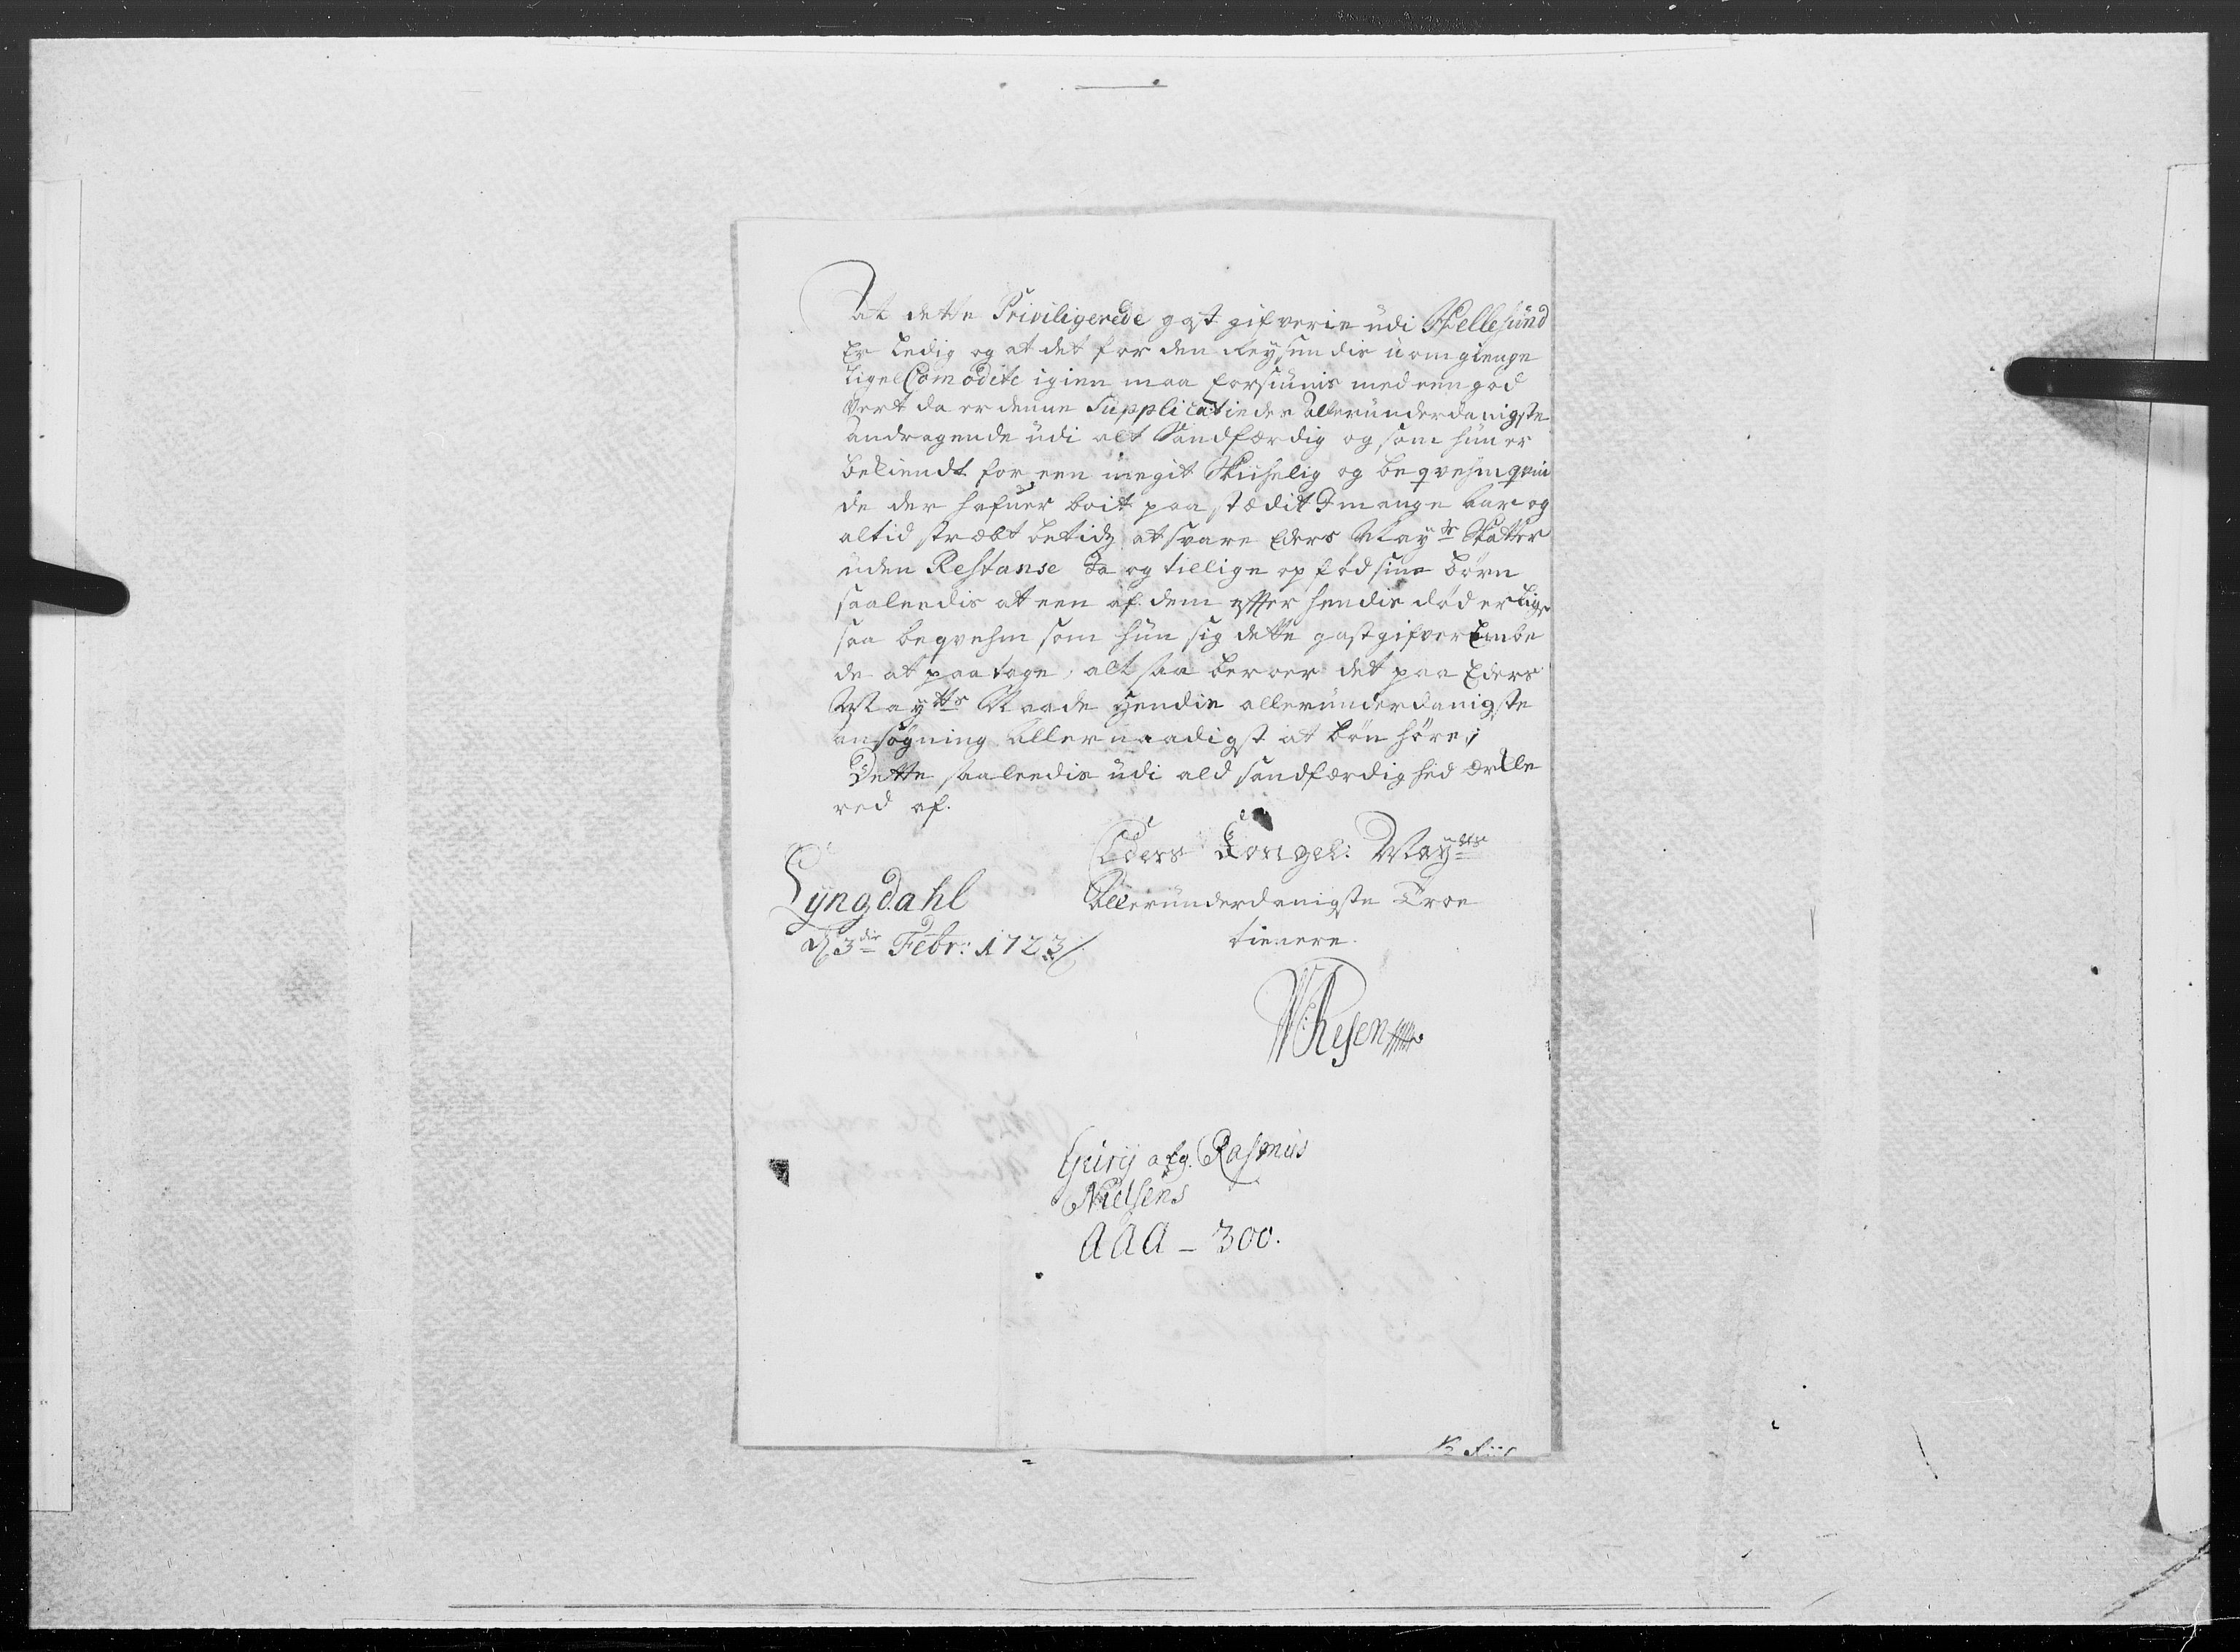 At dette Priviligerede gastgifverie udi Hellesund
Er Ledig og at det for den Reysendis uomgienge
lige Comodite igien maa forsiunis med een god
Vert da er denne Supplicatindes Allerunderdanigste
andragende udi alt Sandfærdig og som hun er
bekiendt for een meget Skichelig og beqvehm qvin
de der hafuer boit paa stædit I mange aar og
altid stræbt betids at svare Eders Mayts Skatter
uden Restanse Ja og tillige opfød sine børn
saaleedis at een af dem efter hendis død er lige
saa beqvehm som hun sig dette gastgifver Embe
de at paatage, alt saa beroer det paa Eders
Maytts Naade hendis allerunderdanigste
ansøgning allernaadigst at bønhøre;
Dette saaleedis udi ald sandfærdighed Erkle
red af.
Eders Kongel: Mayts
Lyngdahl
Allerunderdanigste Troe
d 3die Febr: 1723
tienere
Resen
Guri afg. Rasmus
Nielsens
AAA - 300.